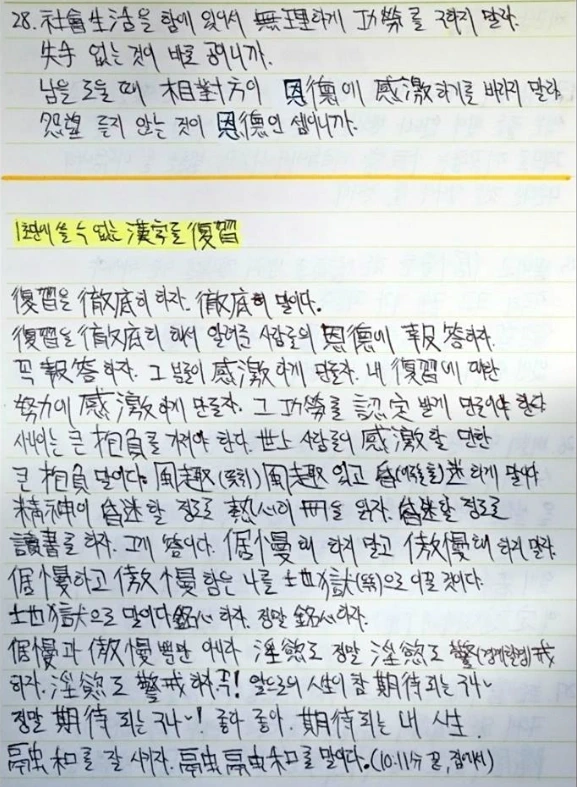 28. 社會生活을 함에 있어서 無理하게 功勞를 구하지 말라.
失手 없는 것이 바로 공이니까.
남을 도울 때 相對方이 恩德에 感激하기를 바라지 말라.
怨望 듣지 않는 것이 恩德인 셈이니까.
1초만에 쓸 수 없는 漢字들 復習
復習을 徹底히 하자. 徹底히 말이다.
復習을 徹底히 해서 알려준 사람들의 恩德에 報答하자.
꼭 報答하자. 그 분들이 感激하게 만들자. 내 復習에 대한
努力에 感激하게 만들자. 그 功勞를 認定 받게 만들어야 한다
새해는 큰 抱負를 가져야 한다. 世上 사람들이 感激할 만한
큰 抱負 말이다. 風趣(풍취) 風趣 있고 昏(어두울혼)迷하게 말이다
精神이 昏迷할 정도로 熱心히 冊을 읽자. 昏迷할 정도로
讀書를 하자. 그게 答이다. 倨慢해 하지 말고 傲慢해 하지 말라.
倨慢하고 傲慢함은 나를 土地獄(옥)으로 이끌 것이다.
土地獄으로 말이다 銘心하자. 정말 銘心하자.
倨慢과 傲慢 뿐만 아니라 淫慾도 정말 淫慾도 警(경계할경)戒
하자. 淫慾도 警戒하자 꼭! 앞으로의 人生이 참 期待되는구나~
정말 期待되는구나~! 좋아 좋아. 期待되는 내 人生
融和를 잘 시키자. 融 融和를 말이다. (10:11분 끝, 집에서)